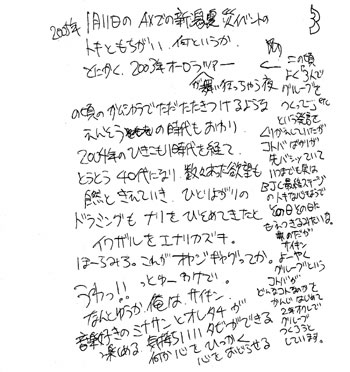 2005年 1月11日の AXでの新潟震災イベントの
トキともちがい、何というか、
とにかく、2003年オーロラツアー
が舞い立っちゃう夜
の頃のガムシャラでただただたたきつけるような
えんそうの時代もおわり
2004年のひきこもり時代を経て、
とうとう 40代になり 数々な欲望も
自然ときえていき、ひとばかりの
ドラミングも ナリをひそめてきたと
イワザルをエナリカズキ。
ほーらみろ。これがオヤジギャグってか。
うわっ!! っとゆーわけで。
なんとゆうか、俺は、サイキン
音楽好きのミナサンとオレタチが
楽しめる、気持ちイイタビができる
何か心をひっかく
心をおどらせる
この頃
よく3人で
グループを
つくって」etc
という発言を
くりかえしていたが
コトバばかりが
先バシっていて
いつまでも実は
BJCと最終ステージ
の人キな心持ちで
その日その日に
もえつきるみたいな。
サイキン
よーやく
グループという
コトバが
どんなコトなのかを
かんじはじめて
2年オクレで
グループ
つくろうと
しています。